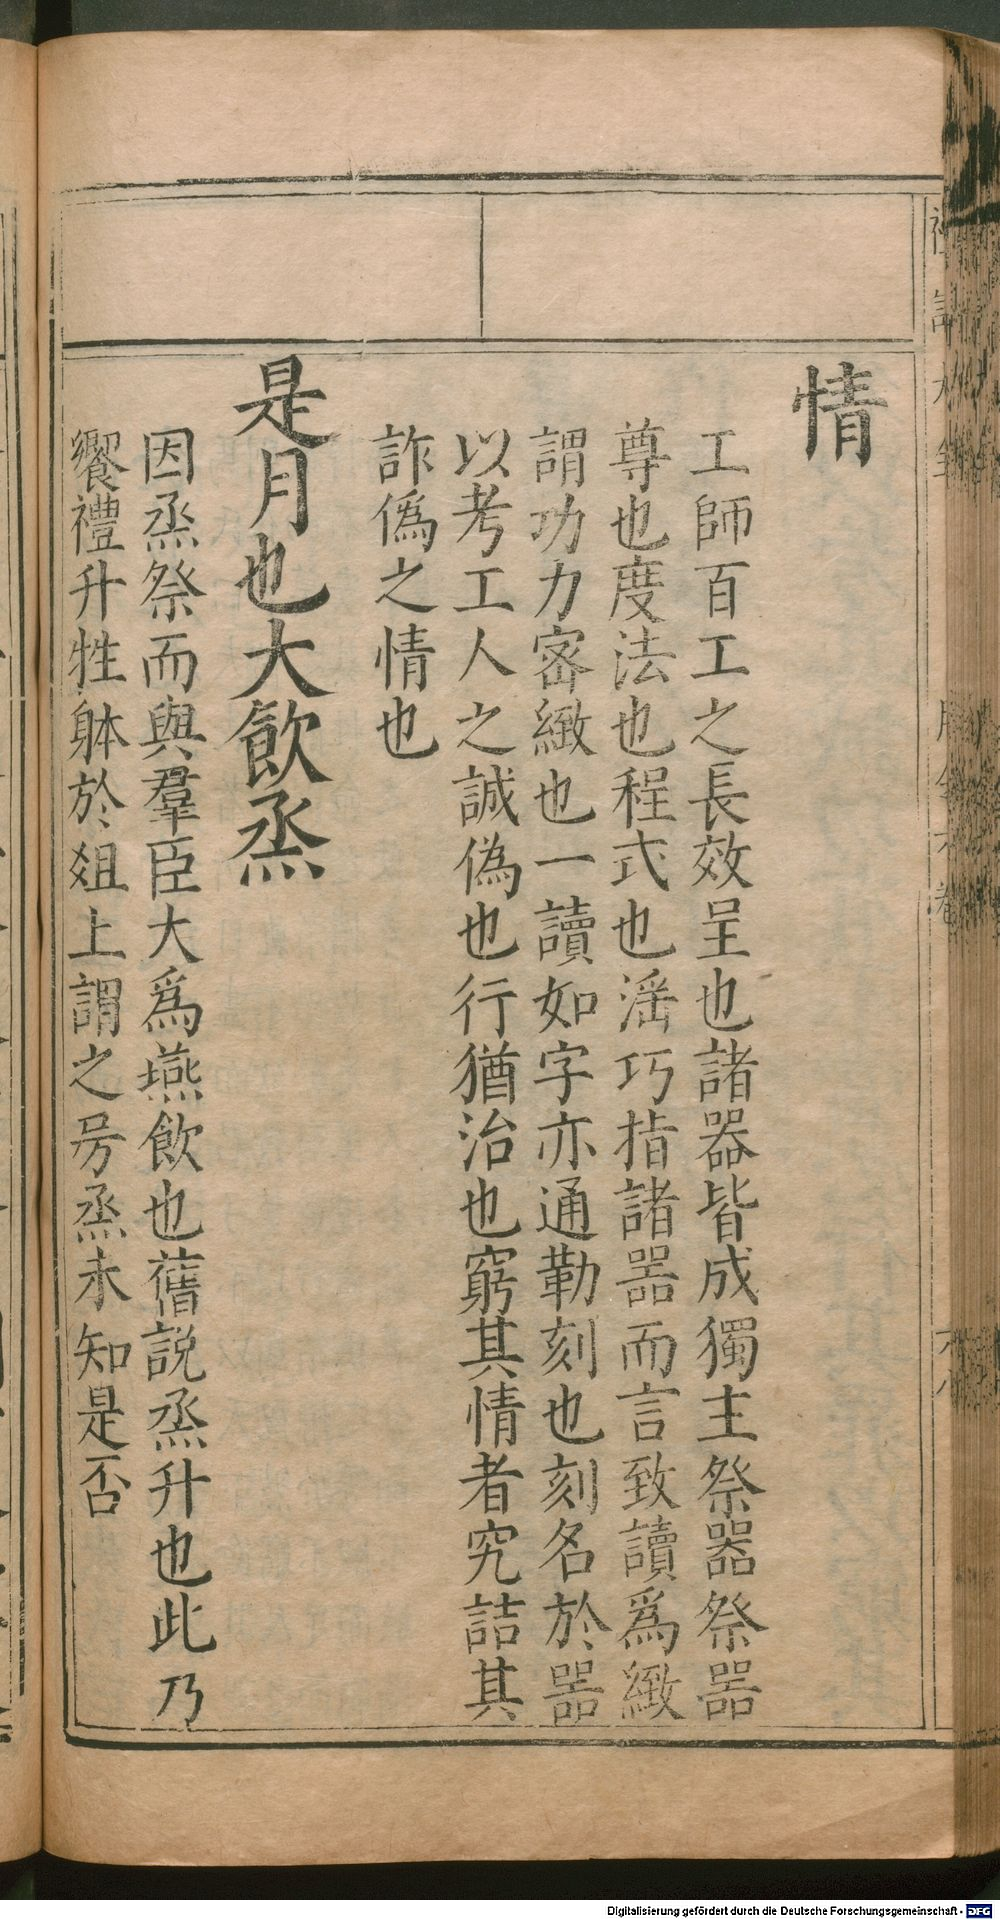 情
工師百工之長效呈也諸器皆成獨主祭器祭器
尊也度法也程式也滛巧指諸器而言致讀爲緻
謂功力宻緻也一讀如字亦通勒刻也刻名於器
以考工人之誠偽也行猶治也窮其情者究詰其
詐僞之情也
是月也大飮烝
因烝祭而與羣臣大爲燕飮也舊説烝升也此乃
饗禮升牲躰於俎上謂之房烝未知是否
Digitalisierung gefördert durch die Deutsche Forschungsgemeinschaft - DFG